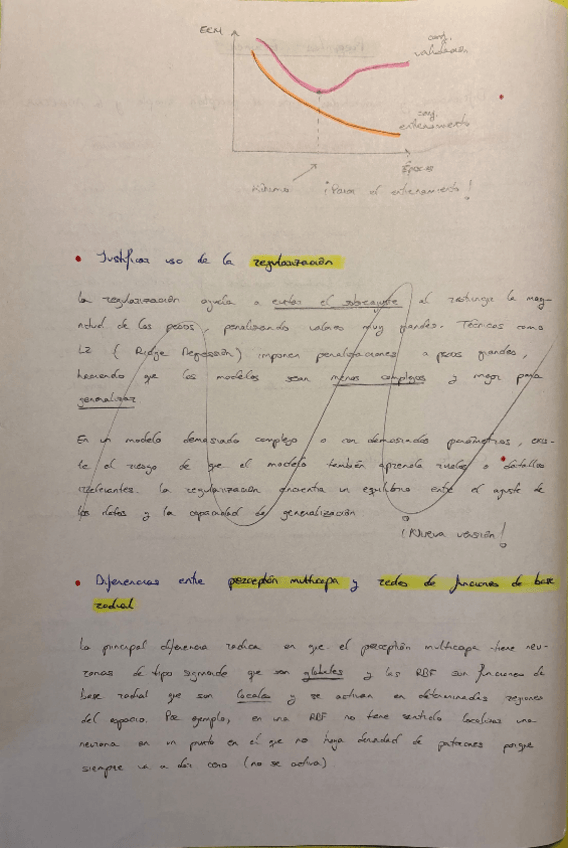 ECM
conj.
validación
conj.
entrenamiento
Épocas
Mínimo ¡Parar el entrenamiento!
• Justificar uso de la regularización
La regularización ayuda a evitar el sobreajuste al restringir la mag-
nitud de los pesos, penalizando valores muy grandes. Técnicas como
L2 (Ridge Regression) imponen penalizaciones a pesos grandes,
haciendo que los modelos sean menos complejos y mejor para
generalizar
En un modelo demasiado complejo o con demasiados parámetros, exis-
te el riesgo de que el modelo también aprenda ruidos o detalles
irrelevantes. La regularización encuentra un equilibrio entre el ajuste de
los datos y la capacidad de generalización
¡Nueva versión!
• Diferencias entre perceptrón multicapa y redes de funciones de base
radial
La principal diferencia radica en que el perceptrón multicapa tiene neu-
ronas de tipo sigmoide que son globales y las RBF son funciones de
base radial que son locales y se activan en determinadas regiones
del espacio. Por ejemplo, en una RBF no tiene sentido localizar una
neurona en un punto en el que no haya densidad de patrones porque
siempre va a dar cero (no se activa)